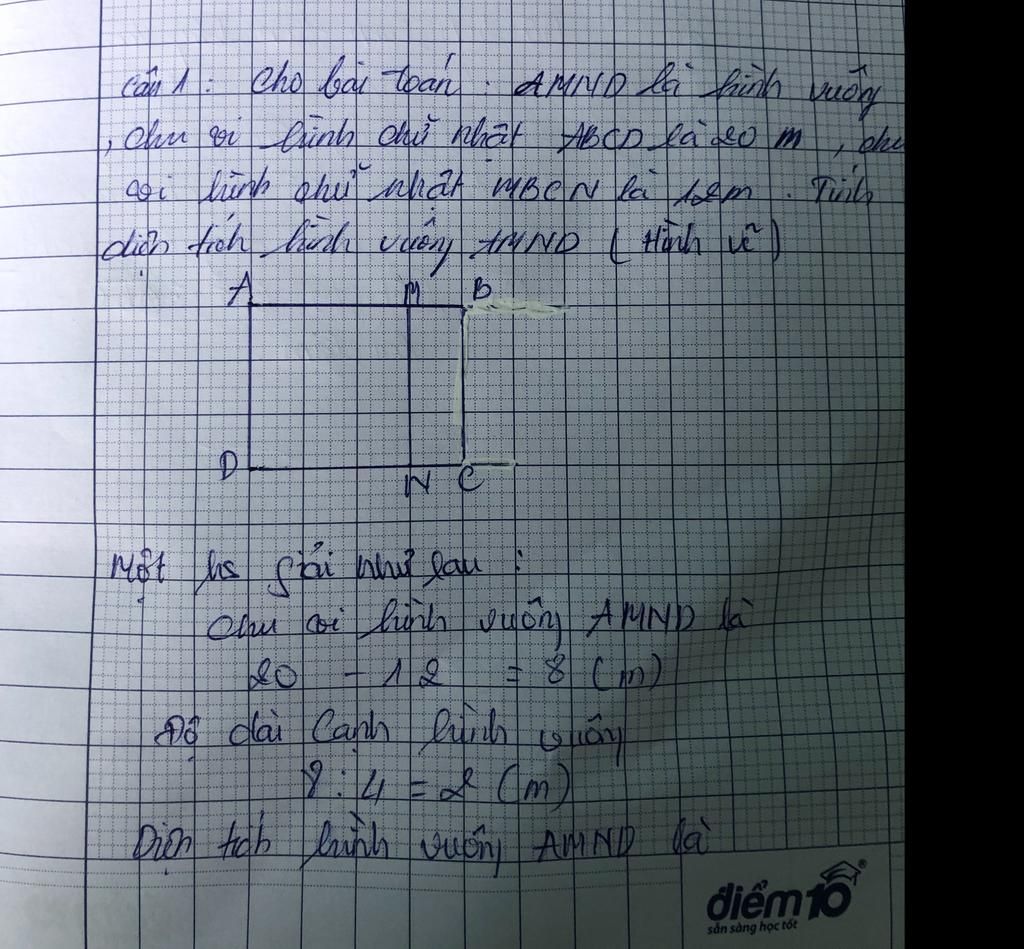 Câu 1: Cho bài toán. AMND là hình vuông
, chu vi hình chữ nhật ABCD là 20 m, chu
vi hình chữ nhật MBCN là 12m. Tính
diện tích hình vuông AMND (Hình vẽ)
A M B
D N C
Một hs giải như sau:
Chu vi hình vuông AMND là
20 - 12 = 8 (m)
Độ dài cạnh hình vuông
8 : 4 = 2 (m)
Diện tích hình vuông AMND là
điểm10®
sẵn sàng học tốt